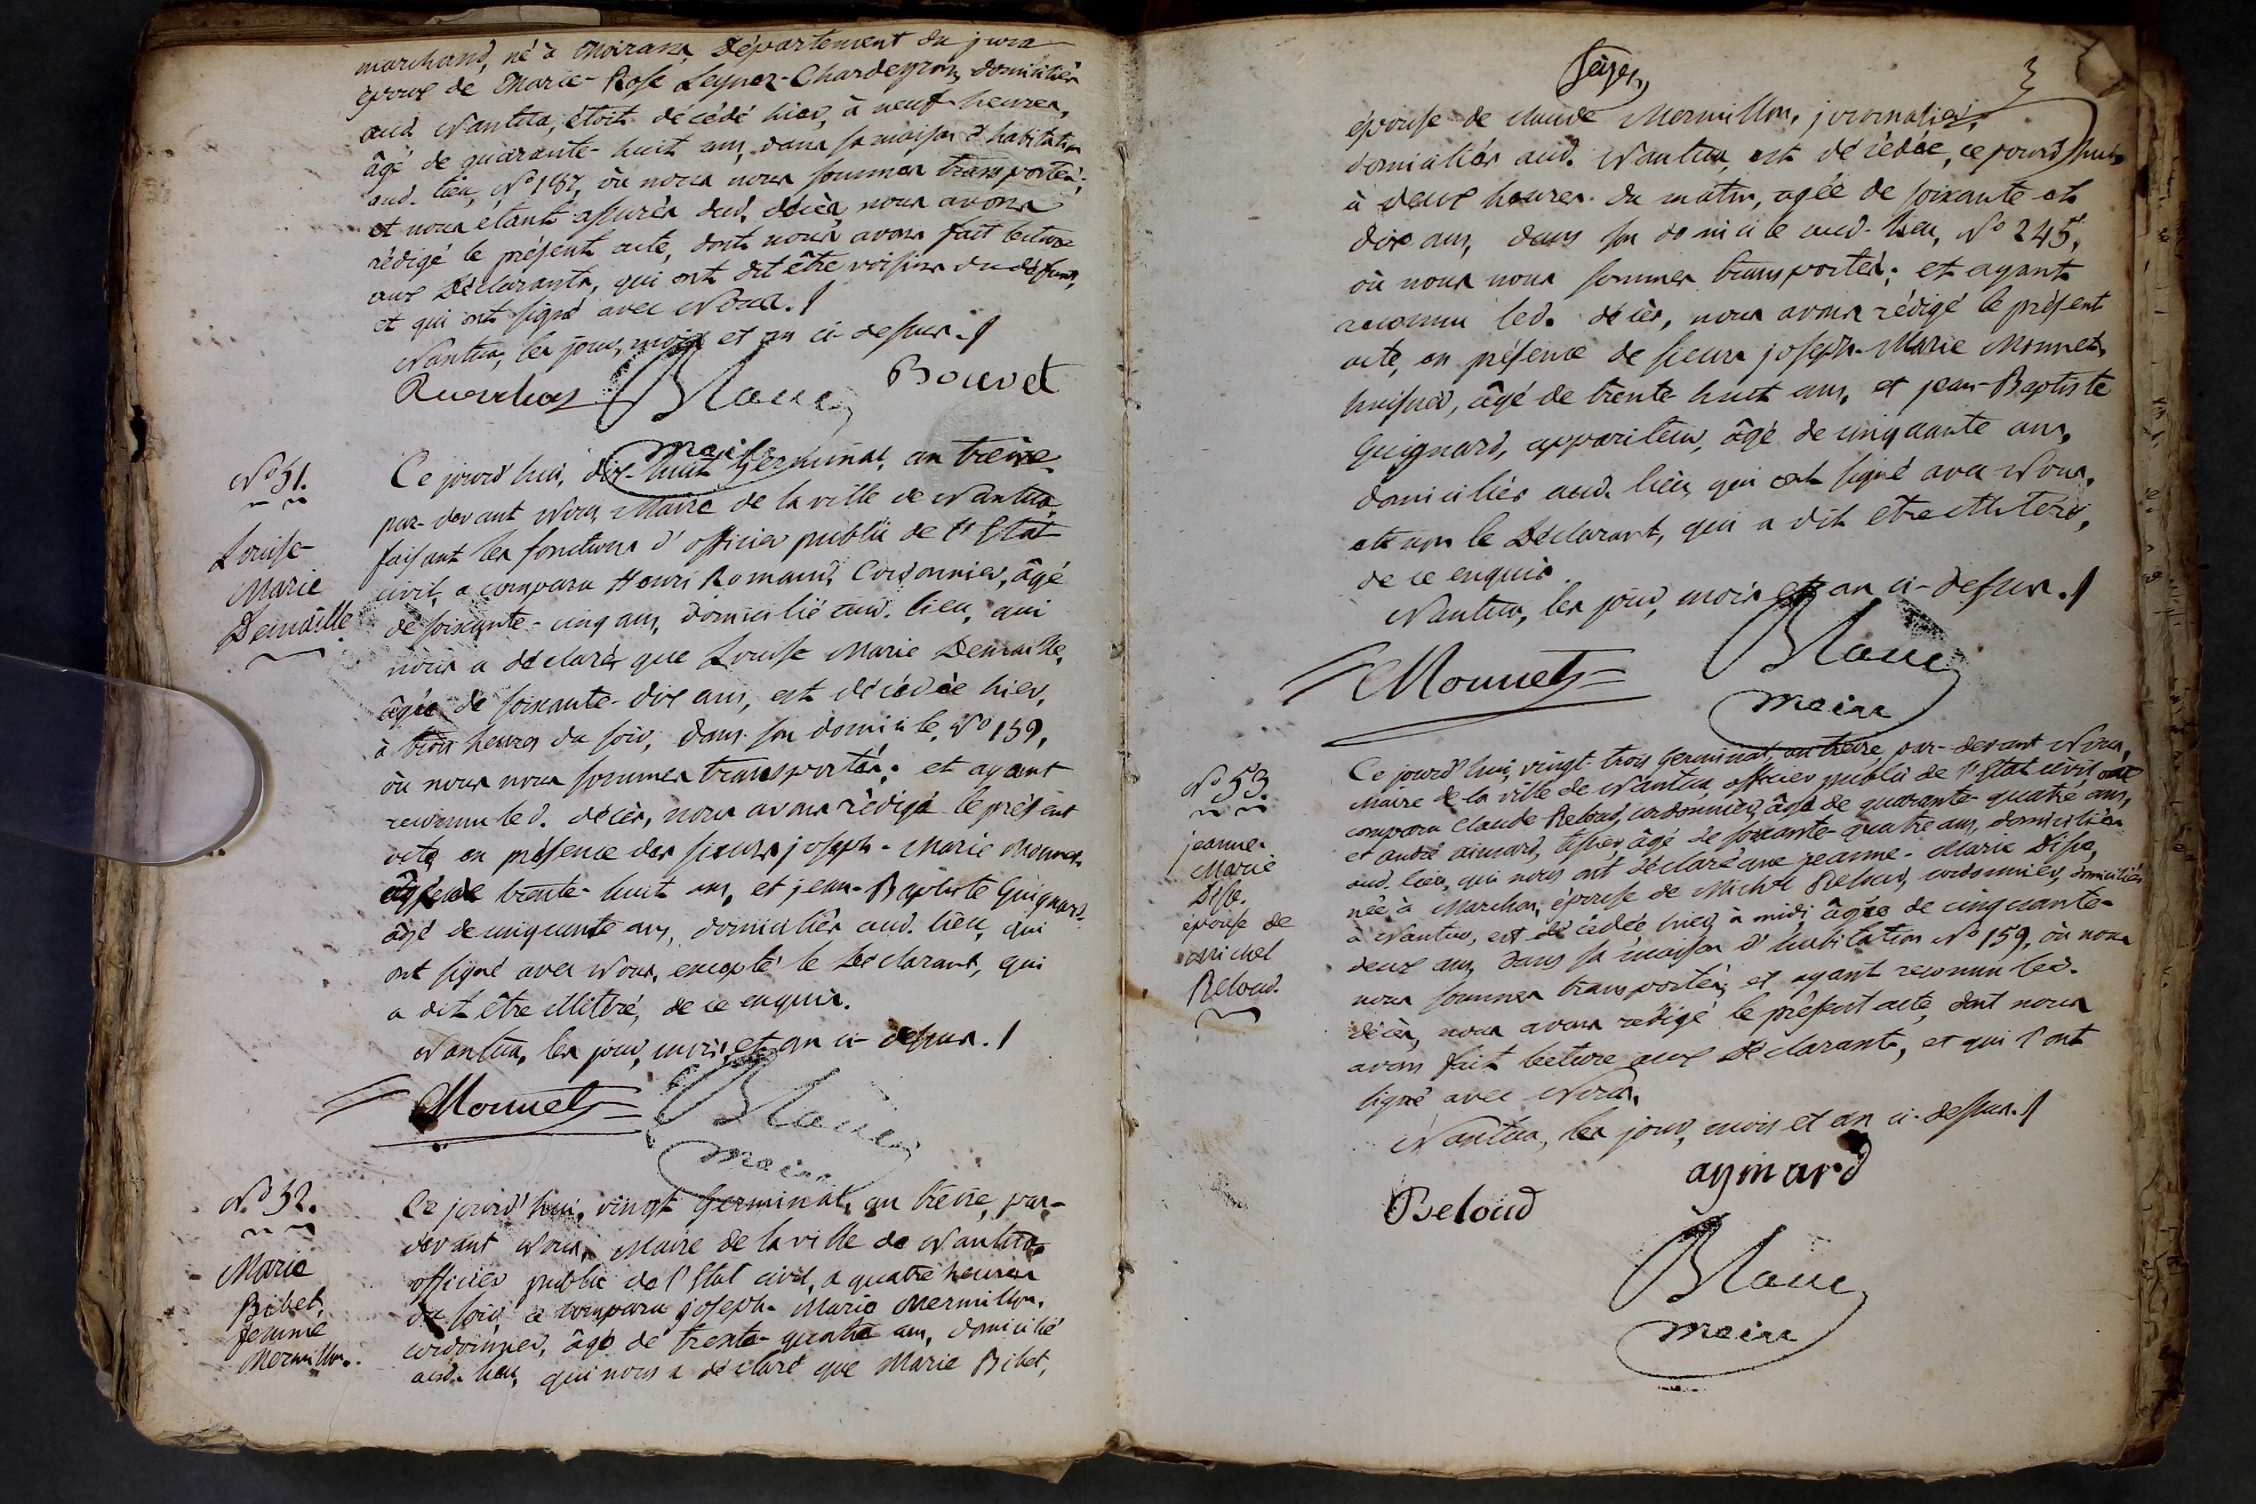 marchand, né à Moirans, Département du jura
époux de Marie-Rose Leynez-Chardeyron, domiciliés
aud. Nantua, étoit décédé hier, à neuf heures,
âgé de quarante-huit ans, dans sa maison d'habitation
aud. lieu, N° 187, où nous nous sommes transportés;
et nous étant assurés dud. décès, nous avons
rédigé le présent acte, dont nous avons fait lecture
aux Déclarants, qui ont dit être voisins du défunt,
et qui ont signé avec Nous.
Nantua, les jour, mois et an ci-dessus.
Blanc Bouvet
maire
N° 51.
Louise
Marie
Demaille
Ce jourd'hui, dix-huit Germinal, an treize,
par-devant Nous, Maire de la ville de Nantua,
faisant les fonctions d'officier public de l'Etat
civil, a comparu Henri Romand, Cordonnier, âgé
de soixante-cinq ans, domicilié aud. lieu, qui
nous a déclaré que Louise Marie Demaille,
âgée de soixante-dix ans, est décédée hier,
à trois heures du soir, dans son domicile, N° 159,
où nous nous sommes transportés; et ayant
reconnu led. décès, nous avons rédigé le présent
acte, en présence des sieurs joseph-Marie Monnet,
âgé de trente-huit ans, et jean-Baptiste Guignard,
âgé de cinquante ans, domiciliés aud. lieu, qui
ont signé avec Nous, excepté le Déclarant, qui
a dit être illitéré, de ce enquis.
Nantua, les jour, mois et an ci-dessus.
Monnet Blanc
maire
N° 52.
Marie
Bibet,
femme
Mermillon.
Ce jourd'hui, vingt Germinal, an treize, par-
devant Nous, Maire de la ville de Nantua
officier public de l'Etat civil, a quatre heures
du soir, a comparu joseph-Marie Mermillon,
cordonnier, âgé de trente-quatre ans, domicilié
aud. lieu, qui nous a déclaré que Marie Bibet,
Seize
épouse de claude Mermillon, journalier,
domiciliés aud. Nantua, est décédée, ce jourd'hui
à deux heures du matin, agée de soixante et
dix ans, dans son domicile aud. lieu, N° 245,
où nous nous sommes transportés; et ayant
reconnu led. décès, nous avons rédigé le présent
acte, en présence de sieurs joseph-Marie Monnet,
huissier, âgé de trente-huit ans, et jean-Baptiste
Guignard, appariteur, âgé de cinquante ans,
domiciliés aud. lieu, qui ont signé avec Nous,
et non le Déclarant, qui a dit être illitéré,
de ce enquis.
Nantua, les jour, mois et an ci-dessus.
Monnet Blanc
maire
N° 53.
jeanne
Marie
Disse.
épouse de
michel
Beloud.
Ce jourd'hui, vingt-trois Germinal an treize par-devant Nous,
Maire de la ville de Nantua, officier public de l'Etat civil, ont
comparu Claude Beloud, cordonnier, âgé de quarante-quatre ans,
et andré aimard, âgé de soixante-quatre ans, domiciliés
aud. lieu, qui nous ont déclaré que jeanne-Marie Disse,
née à Marchon, épouse de Michel Beloud, cordonnier, domiciliés
à Nantua, est décédée hier, à midi âgée de cinquante-
deux ans, dans sa maison d'habitation N° 159, où nous
nous sommes transportés; et ayant reconnu led.
décès, nous avons rédigé le présent acte, dont nous
avons fait lecture aux Déclarants, et qui l'ont
signé avec Nous.
Nantua, les jour, mois et an ci-dessus.
aymard
Beloud
Blanc
maire